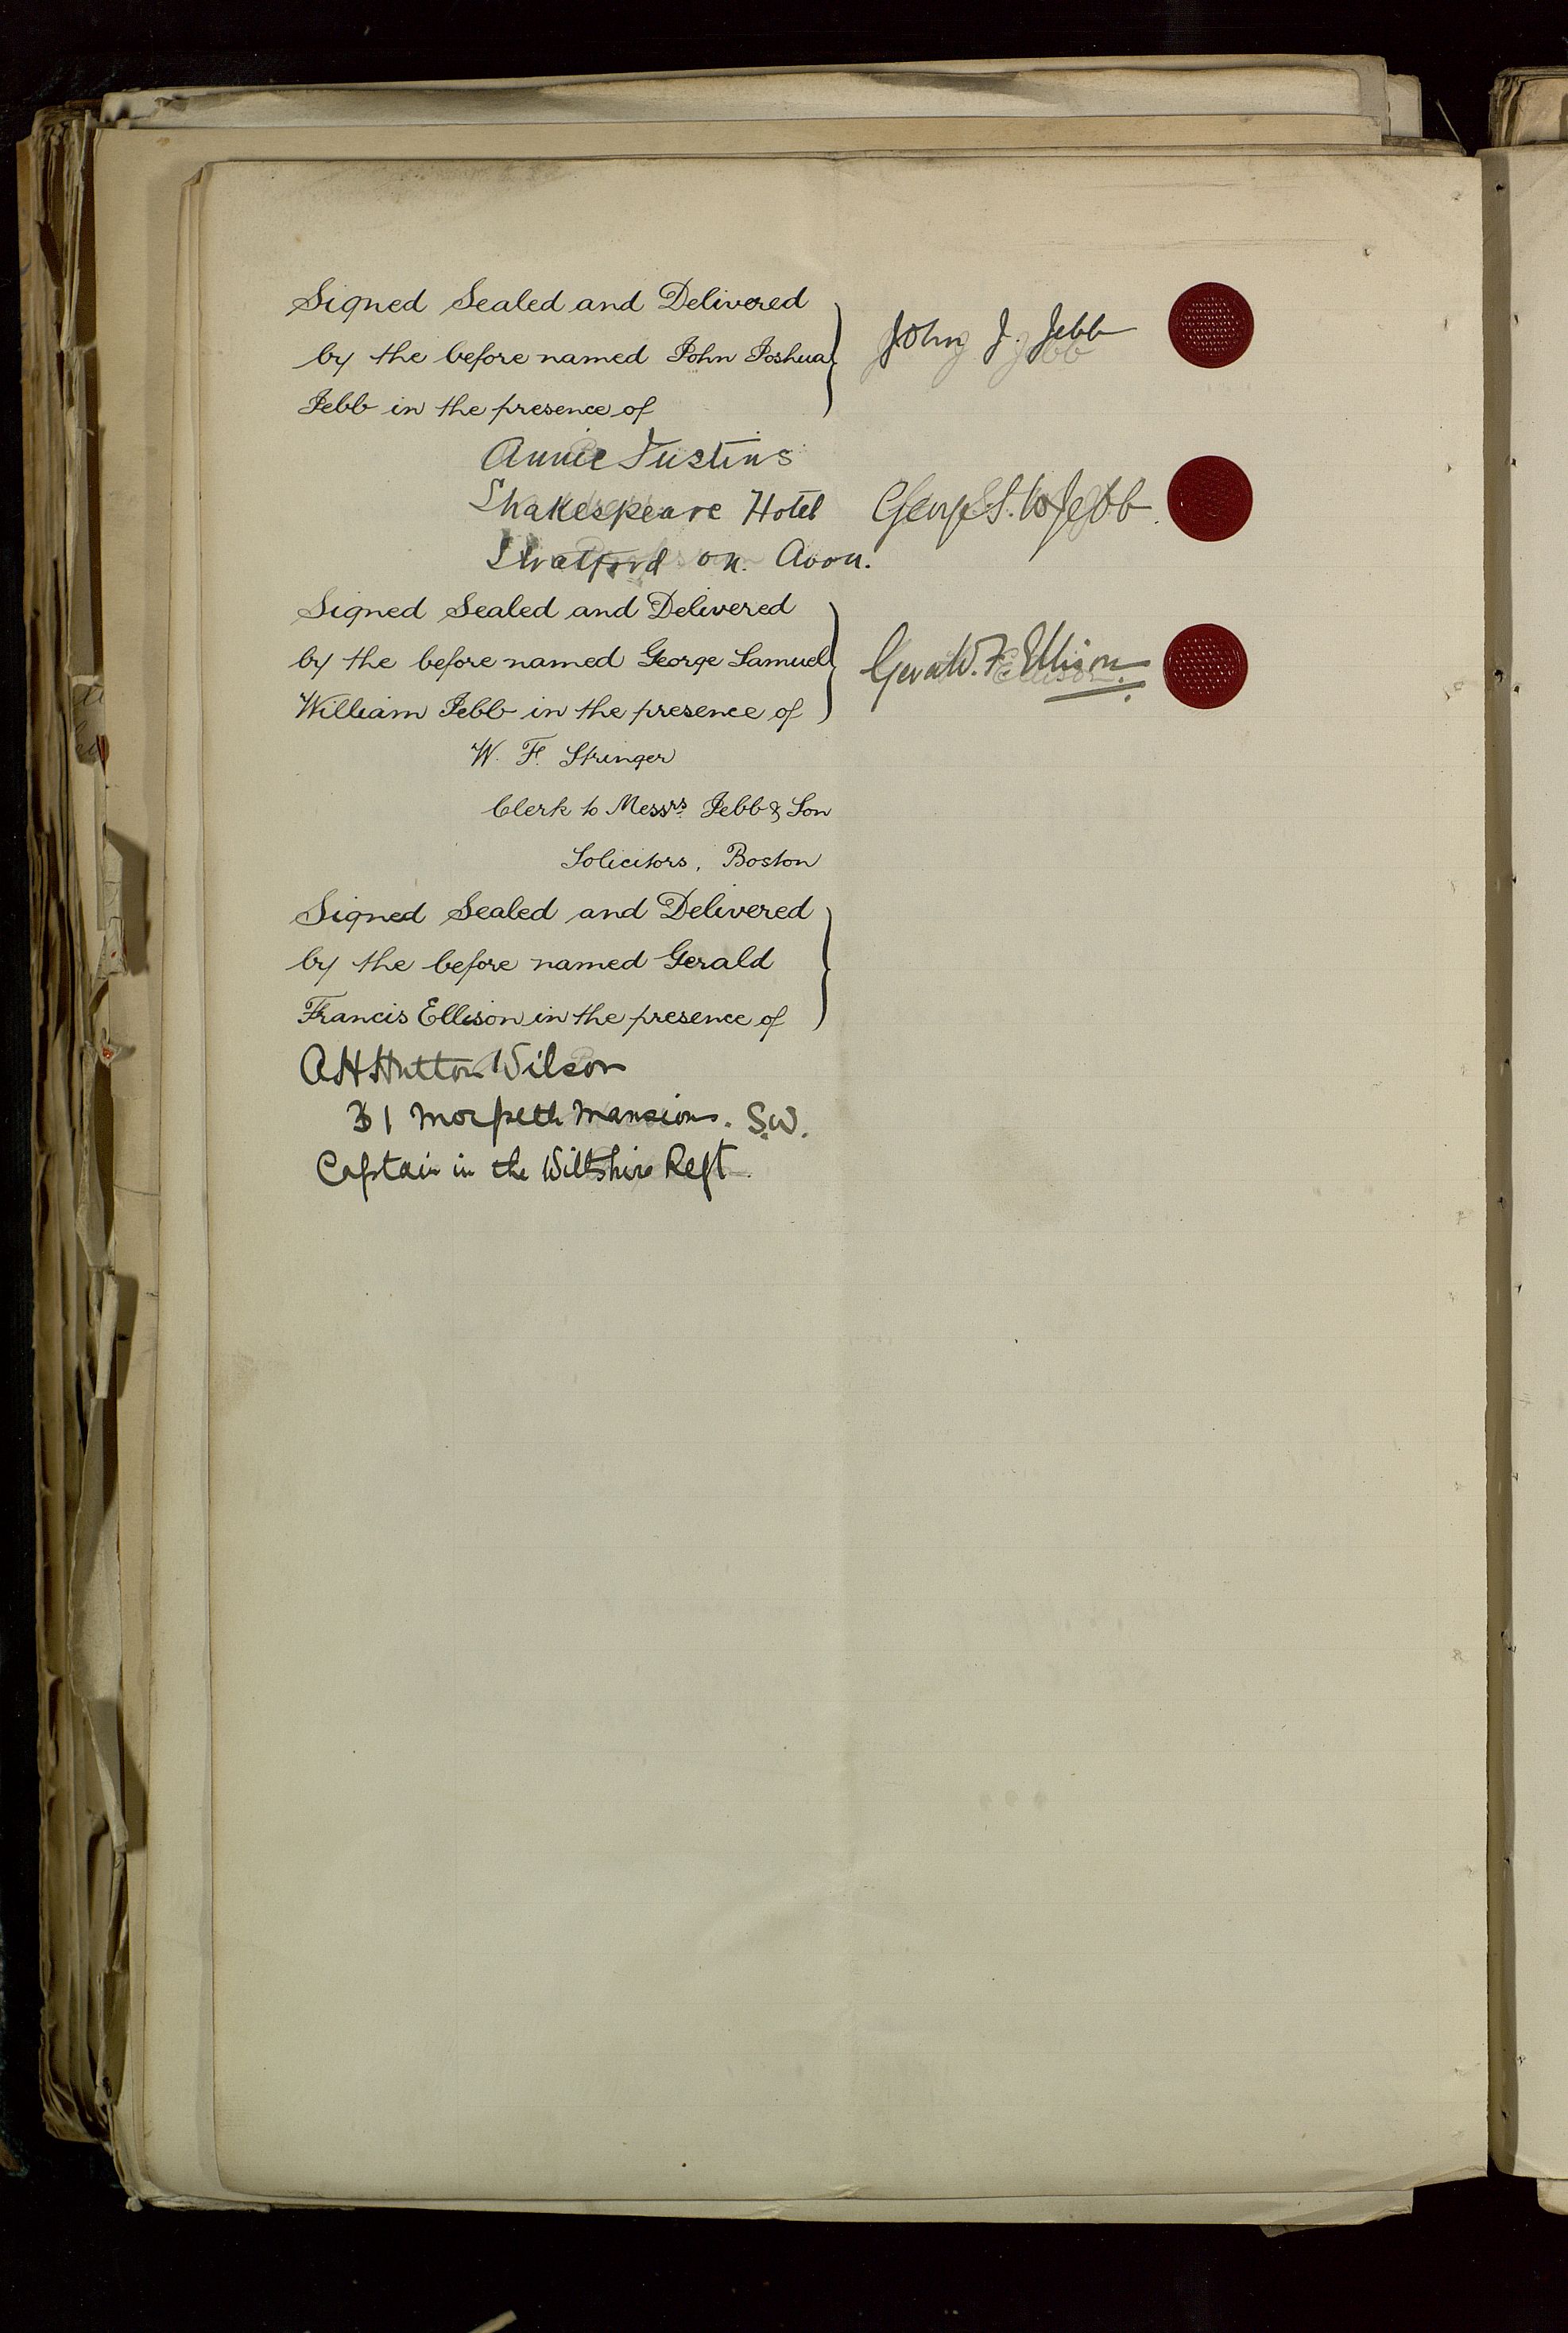 Signed Sealed and Delivered
by the before named John Joshua
Jebb in the presence of
John J. Jebb
Annie Justins
Shakespeare Hotel
Stratford on. Avon.
George S. W Jebb.
Signed Sealed and Delivered
by the before named George Samuel
William Jebb in the presence of
Gerald. F. Ellison.
W. F. Stringer
Clerk to Messrs. Jebb & Son
Solicitors, Boston
Signed Sealed and Delivered
by the before named Gerald
Francis Ellison in the presence of
A H Hutton Wilson
31 Morpeth Mansions. S.W.
Captain in the Wiltshire Regt.